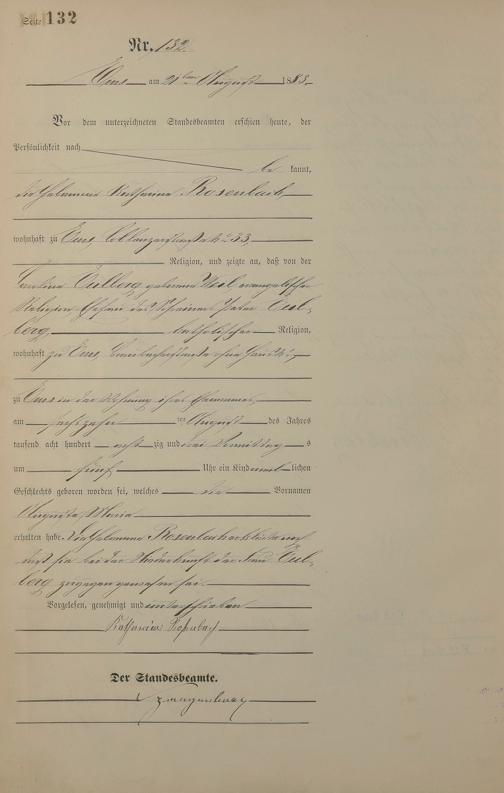 Seite 132
Nr. 132.
Ems am 21ten August 1883
Vor dem unterzeichneten Standesbeamten erschien heute, der
Persönlichkeit nach
be kannt,
die Hebamme Katharina Rosenbach,
wohnhaft zu Ems Coblenzerstraße No 33,
Religion, und zeigte an, daß von der
Carolina geborene evangelischer
Religion Ehefrau des Schreiners Peter
berg, katholischer Religion,
wohnhaft zu Ems
zu Ems in der Wohnung ihres Ehemannes,
am sechszehn ten August des Jahres
tausend acht hundert acht zig und drei Vormittags
um fünf Uhr ein Kind lichen
Geschlechts geboren worden sei, welches die Vornamen
Augusta Maria
erhalten habe. Die Hebamme Rosenbach erklärte noch
daß sie bei der Niederkunft der Frau
berg zugegen gewesen sei.
Vorgelesen, genehmigt und unterschrieben
Katharina Rosenbach
Der Standesbeamte.